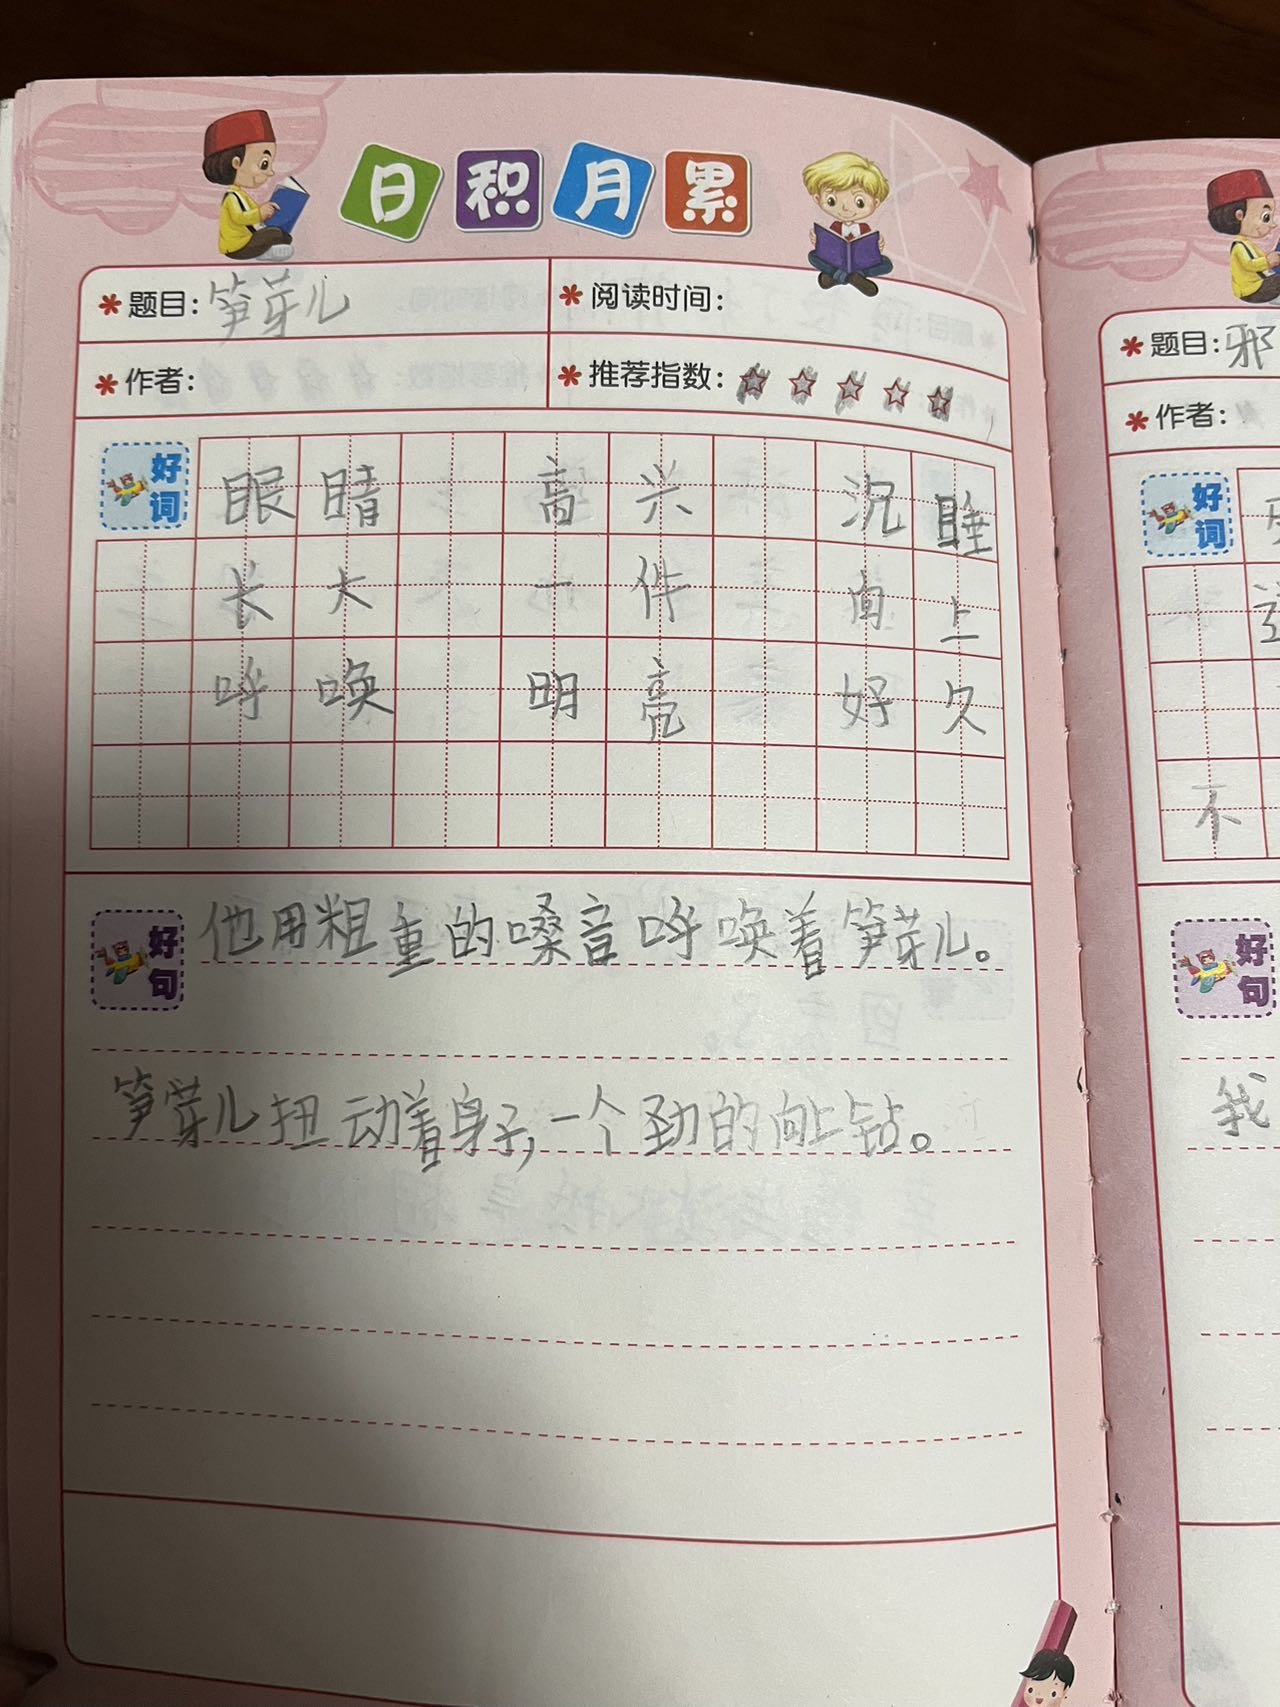 日积月累
题目：笋芽儿 阅读时间：
作者： 推荐指数：
好词 眼睛 高兴 沉睡
长大 一件 向上
呼唤 明亮 好久
好句 他用粗重的嗓音呼唤着笋芽儿。
笋芽儿扭动着身子，一个劲的向上钻。
题目：邪
作者：
好词
不
好句
我